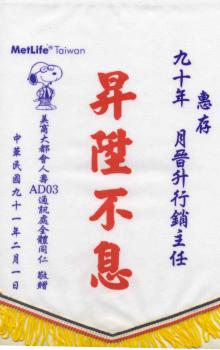 MetLife® Taiwan
惠存
九十年　月晉升行銷主任
昇陞不息
美商大都會人壽AD03通訊處全體同仁 敬贈
中華民國九十一年二月一日